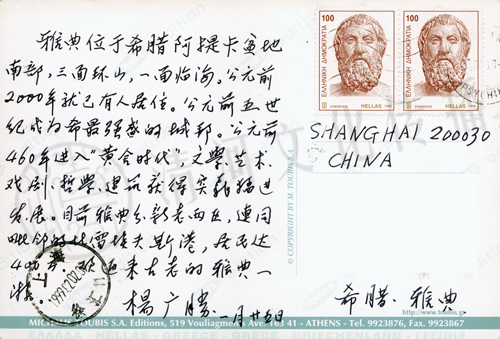 雅典位于希腊阿提卡盆地
南部,三面环山,一面临海。公元前
2000年就已有人居住。公元前五世
纪成为希最强盛的城邦。公元前
460年进入“黄金时代”,文学、艺术、
戏剧、哲学、建筑获得突飞猛进
发展。目前雅典分新老两区,连同
毗邻的比雷埃夫斯港,居民达
400万。
来古老的雅典一
游。
杨广胜 一月廿五日
100
ΕΛΛΗΝΙΚΗ ΔΗΜΟΚΡΑΤΙΑ
HELLAS
100
ΕΛΛΗΝΙΚΗ ΔΗΜΟΚΡΑΤΙΑ
HELLAS
SHANGHAI 200030
CHINA
© COPYRIGHT BY M. TOUBIS S.A.
希腊、雅典
上海
http://www.toubis.gr
TOUBIS S.A. Editions, 519 Vouliagmenis Ave. 163 41 - ATHENS - Tel. 9923876, Fax. 9923867